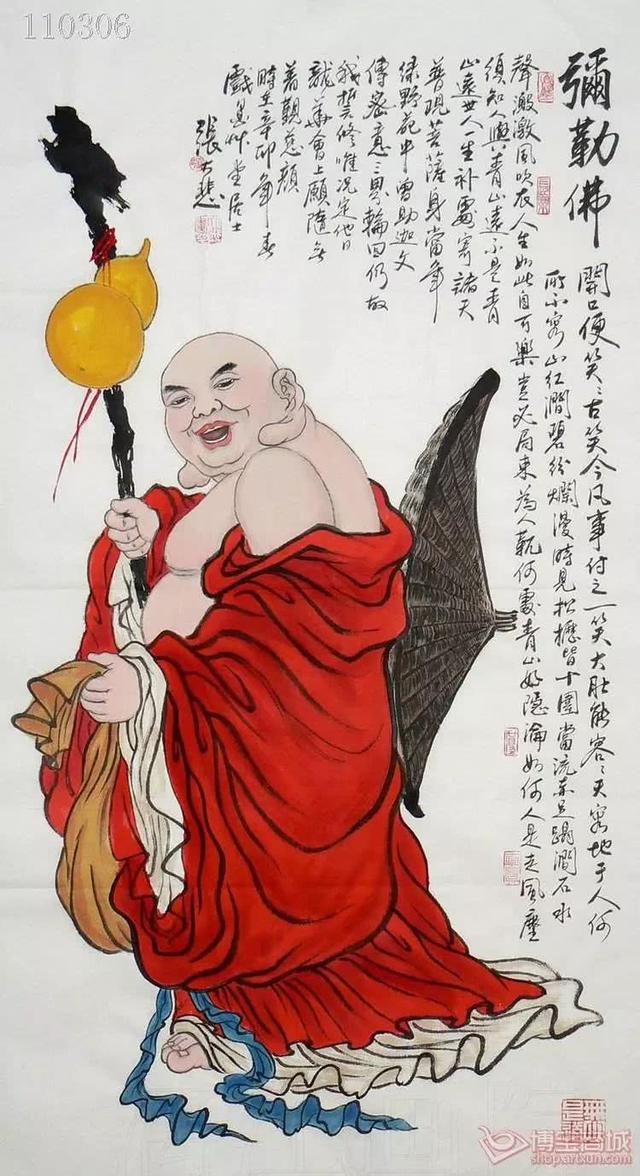 110306
彌勒佛
開口便笑〻古笑今凡事付之一笑大肚能容〻天容地于人何
所不容山红澗碧紛爛漫時見松櫪皆十圍當流赤足蹋澗石水
聲激激風吹衣人生如此自可樂豈必局束為人鞿何處青山好隱淪如何人是走風塵
須知人與青山遠不是青
山遠世人一生補處寄諸天
普現菩薩身當年
緑野苑中曾助迦文
傳密意三界輪回仍故
我誓修唯況定他日
龍華會上願隨無
着觀慈顏
時在辛卯年春
戲墨艸堂居士
張大悲
博宝商城
shop.artxun.com